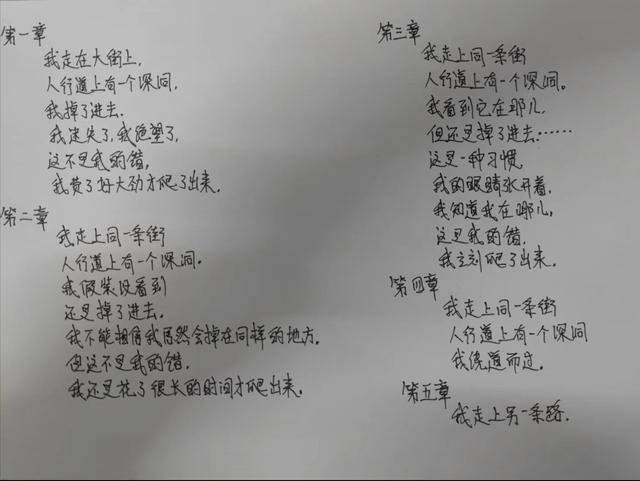 第一章
我走在大街上,
人行道上有一个深洞,
我掉了进去.
我迷失了,我绝望了,
这不是我的错,
我费了好大劲才爬了出来.
第二章
我走上同一条街
人行道上有一个深洞。
我假装没看到
还是掉了进去.
我不能相信我居然会掉在同样的地方.
但这不是我的错.
我还是花了很长的时间才爬出来.
第三章
我走上同一条街
人行道上有一个深洞。
我看到它在那儿
但还是掉了进去……
这是一种习惯
我的眼睛张开着,
我知道我在那儿,
这是我的错,
我立刻爬了出来.
第四章
我走上同一条街
人行道上有一个深洞
我绕道而过.
第五章
我走上另一条路.